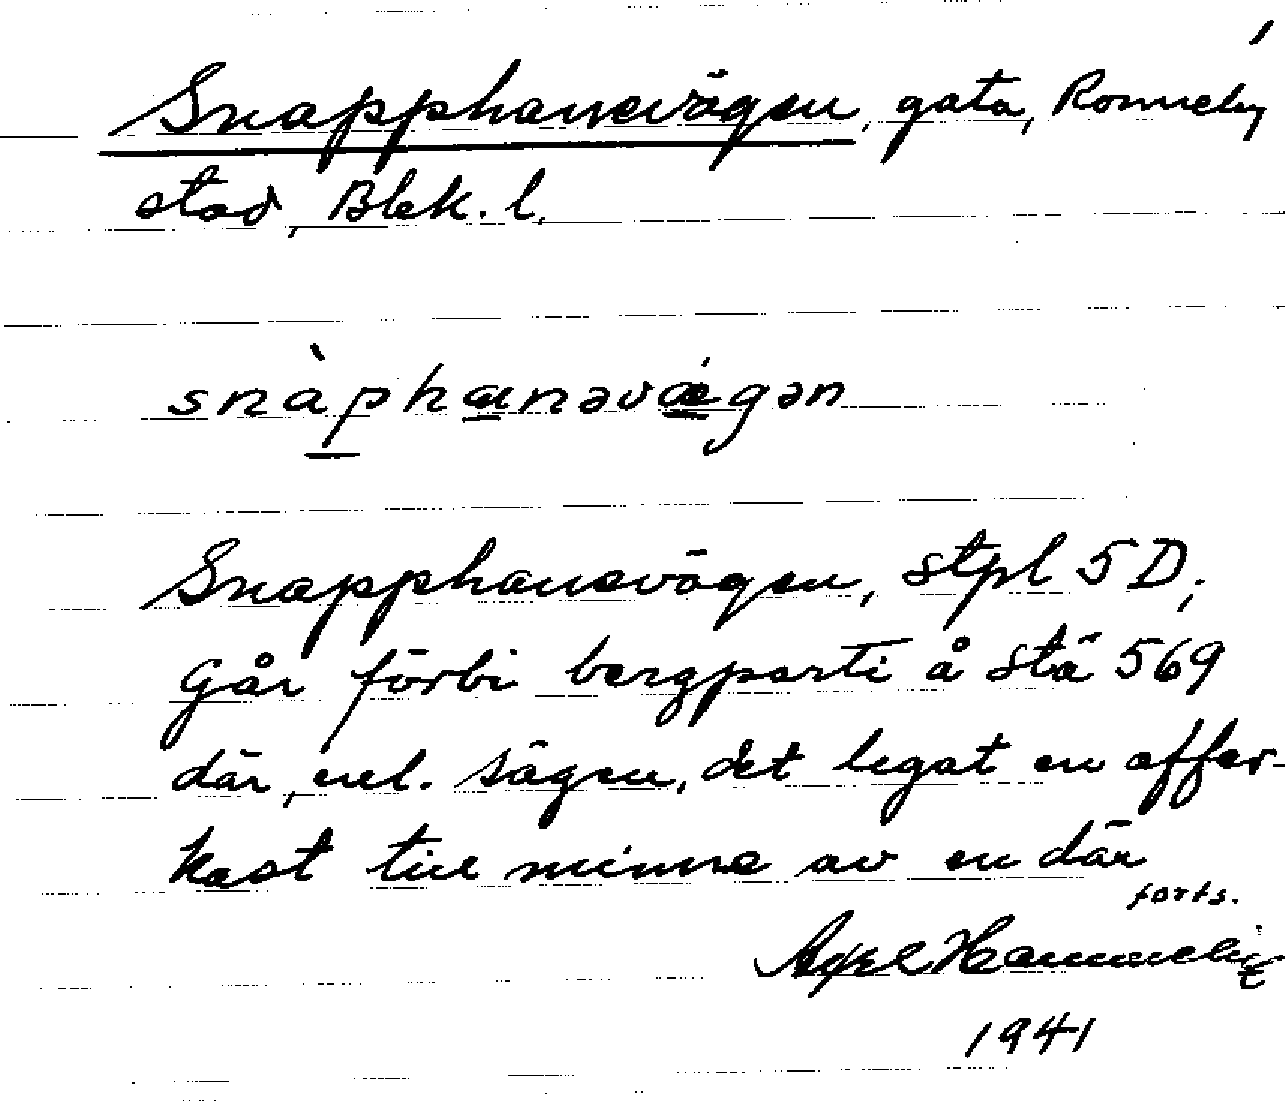 Snapphanevägen, gata, Ronneby
stad, Blek. l.
snàphanəvǽgən
Snapphanevägen, stpl 5D,
går förbi bergparti å stä 569
där, enl. sägen, det legat en offer-
kast till minne av en där
forts.
Axel
1941